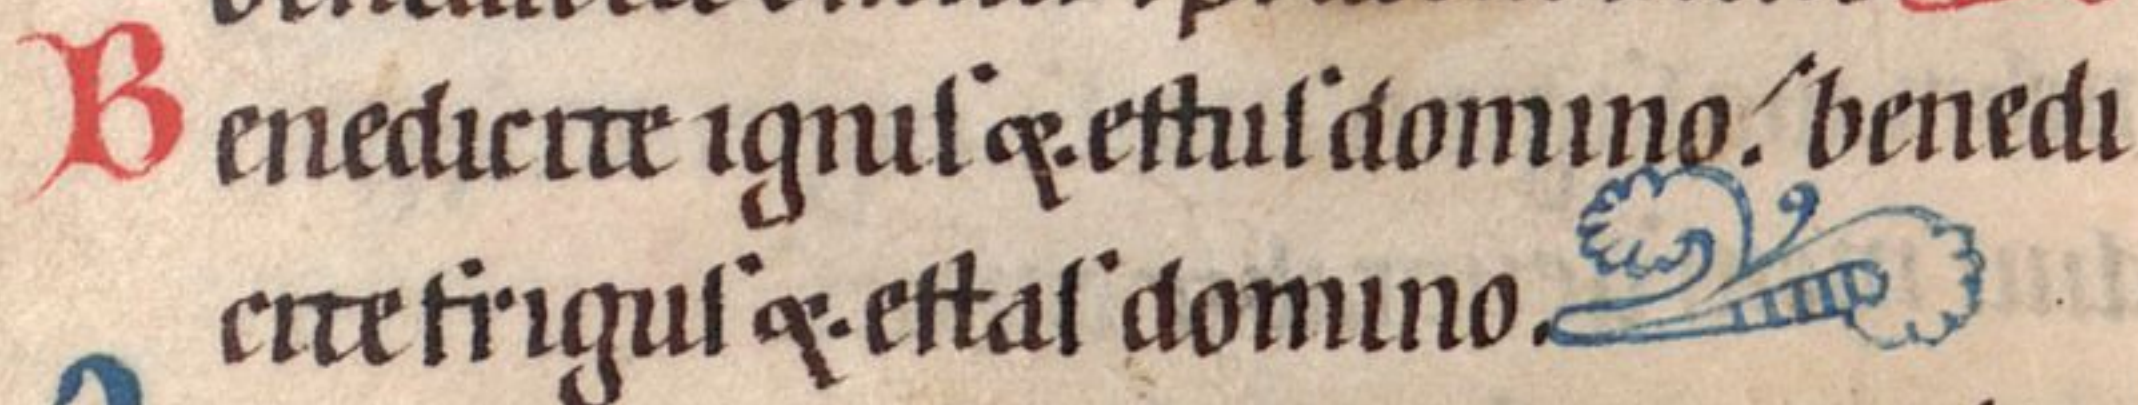 Benedicite ignis &. estus domino. benedi
cite frigus &. estas domino.